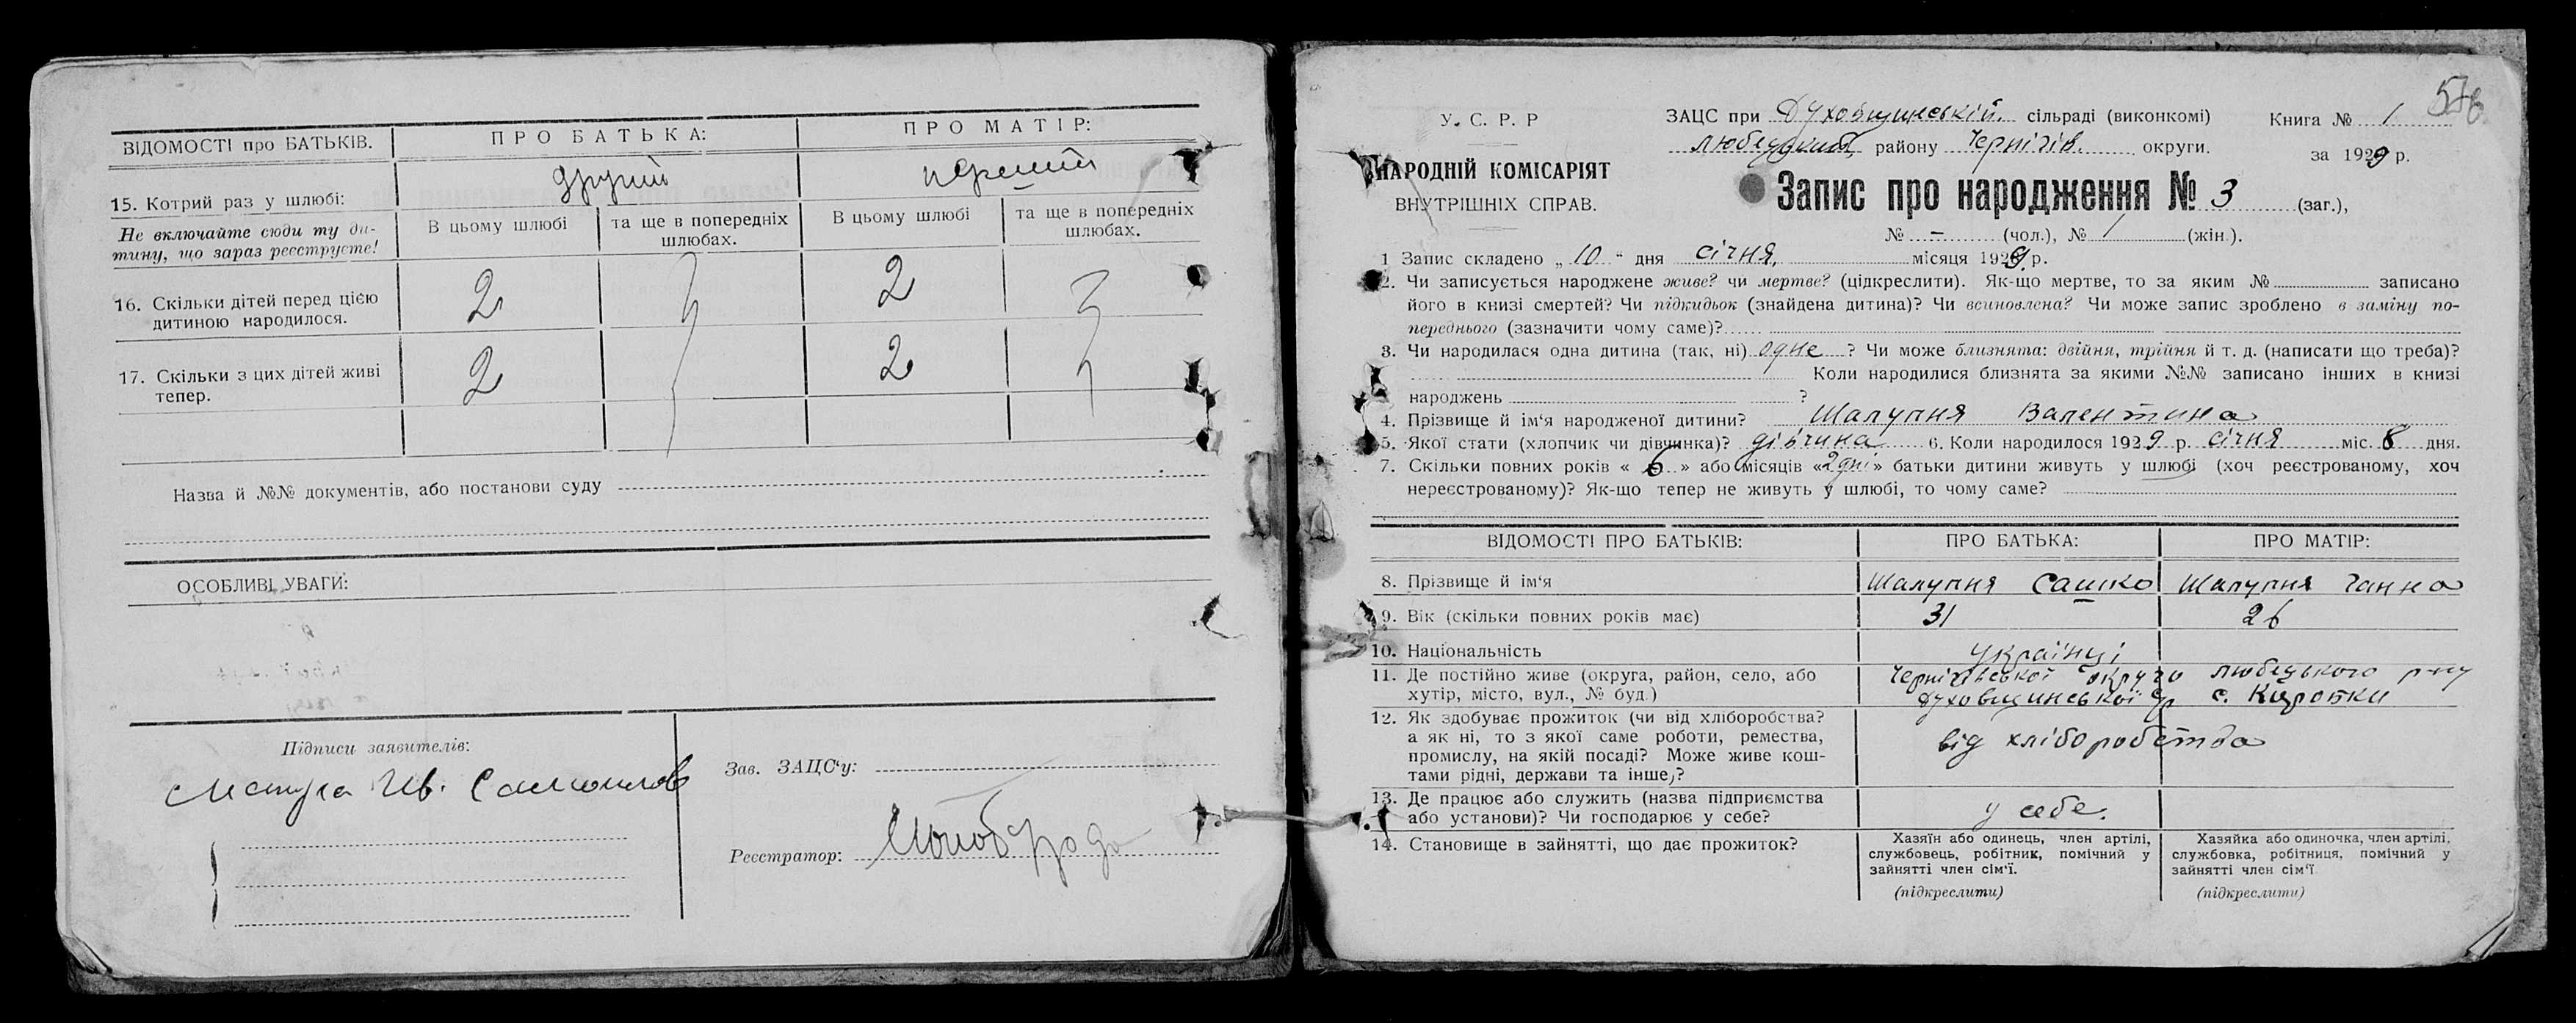 ВІДОМОСТІ про БАТЬКІВ.
ПРО БАТЬКА:
ПРО МАТІР:
15. Котрий раз у шлюбі:
другий
перший
Не включайте сюди ту ди-
тину, що зараз реєструєте!
В цьому шлюбі
та ще в попередніх
шлюбах.
В цьому шлюбі
та ще в попередніх
шлюбах.
16. Скільки дітей перед цією
дитиною народилося.
2
2
17. Скільки з цих дітей живі
тепер.
2
2
Назва й №№ документів, або постанови суду
ОСОБЛИВІ УВАГИ:
Підписи заявителів:
Зав. ЗАЦС‘у:
Реєстратор:
57
У. С. Р. Р
НАРОДНІЙ КОМІСАРІЯТ
ВНУТРІШНІХ СПРАВ.
ЗАЦС при Духовщинській. сільраді (виконкомі)
Любецький району Черніхів. округи.
Книга № 1
за 1929 р.
Запис про народження № 3 (заг.),
№ – (чол.), № 1 (жін.).
1 Запис складено „ 10 “ дня січня. місяця 1929 р.
2. Чи записується народжене живе? чи мертве? (підкреслити). Як-що мертве, то за яким № записано
його в книзі смертей? Чи підкидьок (знайдена дитина)? Чи всиновлена? Чи може запис зроблено в заміну по-
переднього (зазначити чому саме)?
3. Чи народилася одна дитина (так, ні) одне ? Чи може близнята: двійня, трійня й т. д. (написати що треба)?
Коли народилися близнята за якими №№ записано інших в книзі
народжень ?
4. Прізвище й ім‘я народженої дитини? Шалупня Валентина
5. Якої стати (хлопчик чи дівчинка)? дівчина 6. Коли народилося 1929 р. січня міс. 8 дня.
7. Скільки повних років « 6 » або місяців « » батьки дитини живуть у шлюбі (хоч реєстрованому, хоч
нереєстрованому)? Як-що тепер не живуть у шлюбі, то чому саме?
ВІДОМОСТІ ПРО БАТЬКІВ:
ПРО БАТЬКА:
ПРО МАТІР:
8. Прізвище й ім‘я
Шалупня Сашко
Шалупня Ганна
9. Вік (скільки повних років має)
31
26
10. Національність
українці
11. Де постійно живе (округа, район, село, або
хутір, місто, вул., № буд.)
Черніхівської округи Любецького р-ну
Духовщинської с/р с. Коротки
12. Як здобуває прожиток (чи від хліборобства?
а як ні, то з якої саме роботи, ремества,
промислу, на якій посаді? Може живе кош-
тами рідні, держави та інше)?
від хліборобства
13. Де працює або служить (назва підприємства
або установи)? Чи господарює у себе?
у себе.
14. Становище в зайнятті, що дає прожиток?
Хазяїн або одинець, член артілі,
службовець, робітник, помічний у
зайнятті член сім‘ї.
(підкреслити)
Хазяйка або одиночка, член артілі,
службовка, робітниця, помічний у
зайнятті член сім‘ї
(підкреслити)